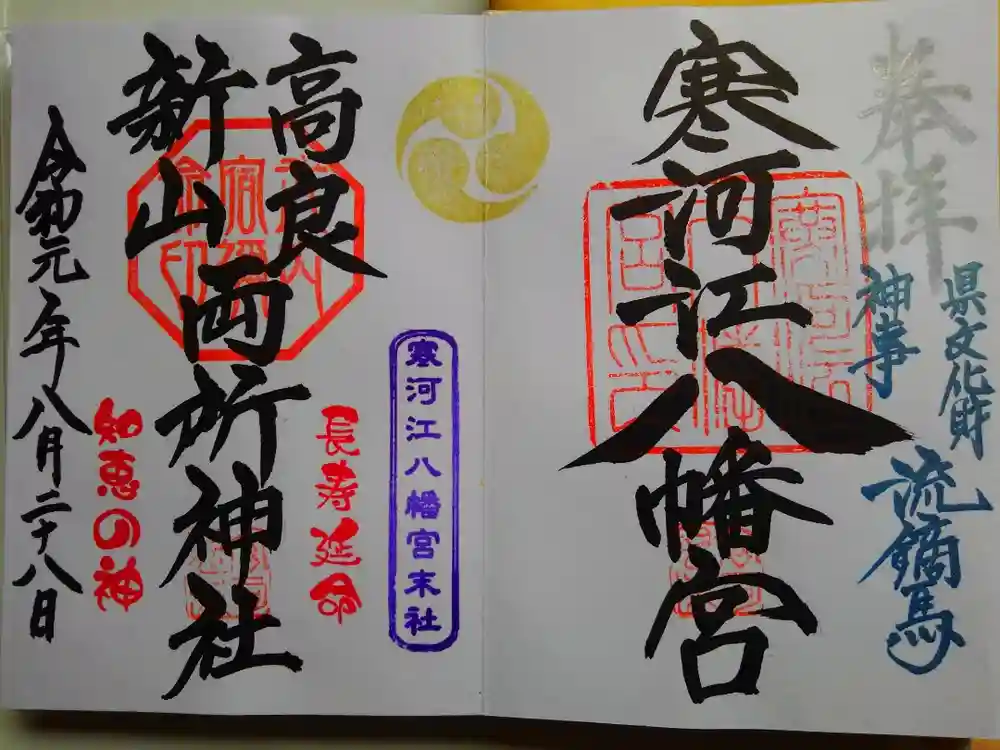 奉拝
県文化財
流鏑馬
神事
寒河江八幡宮
寒河江八幡宮末社
長寿延命
高良
新山
両所神社
知恵の神
令和元年八月二十八日